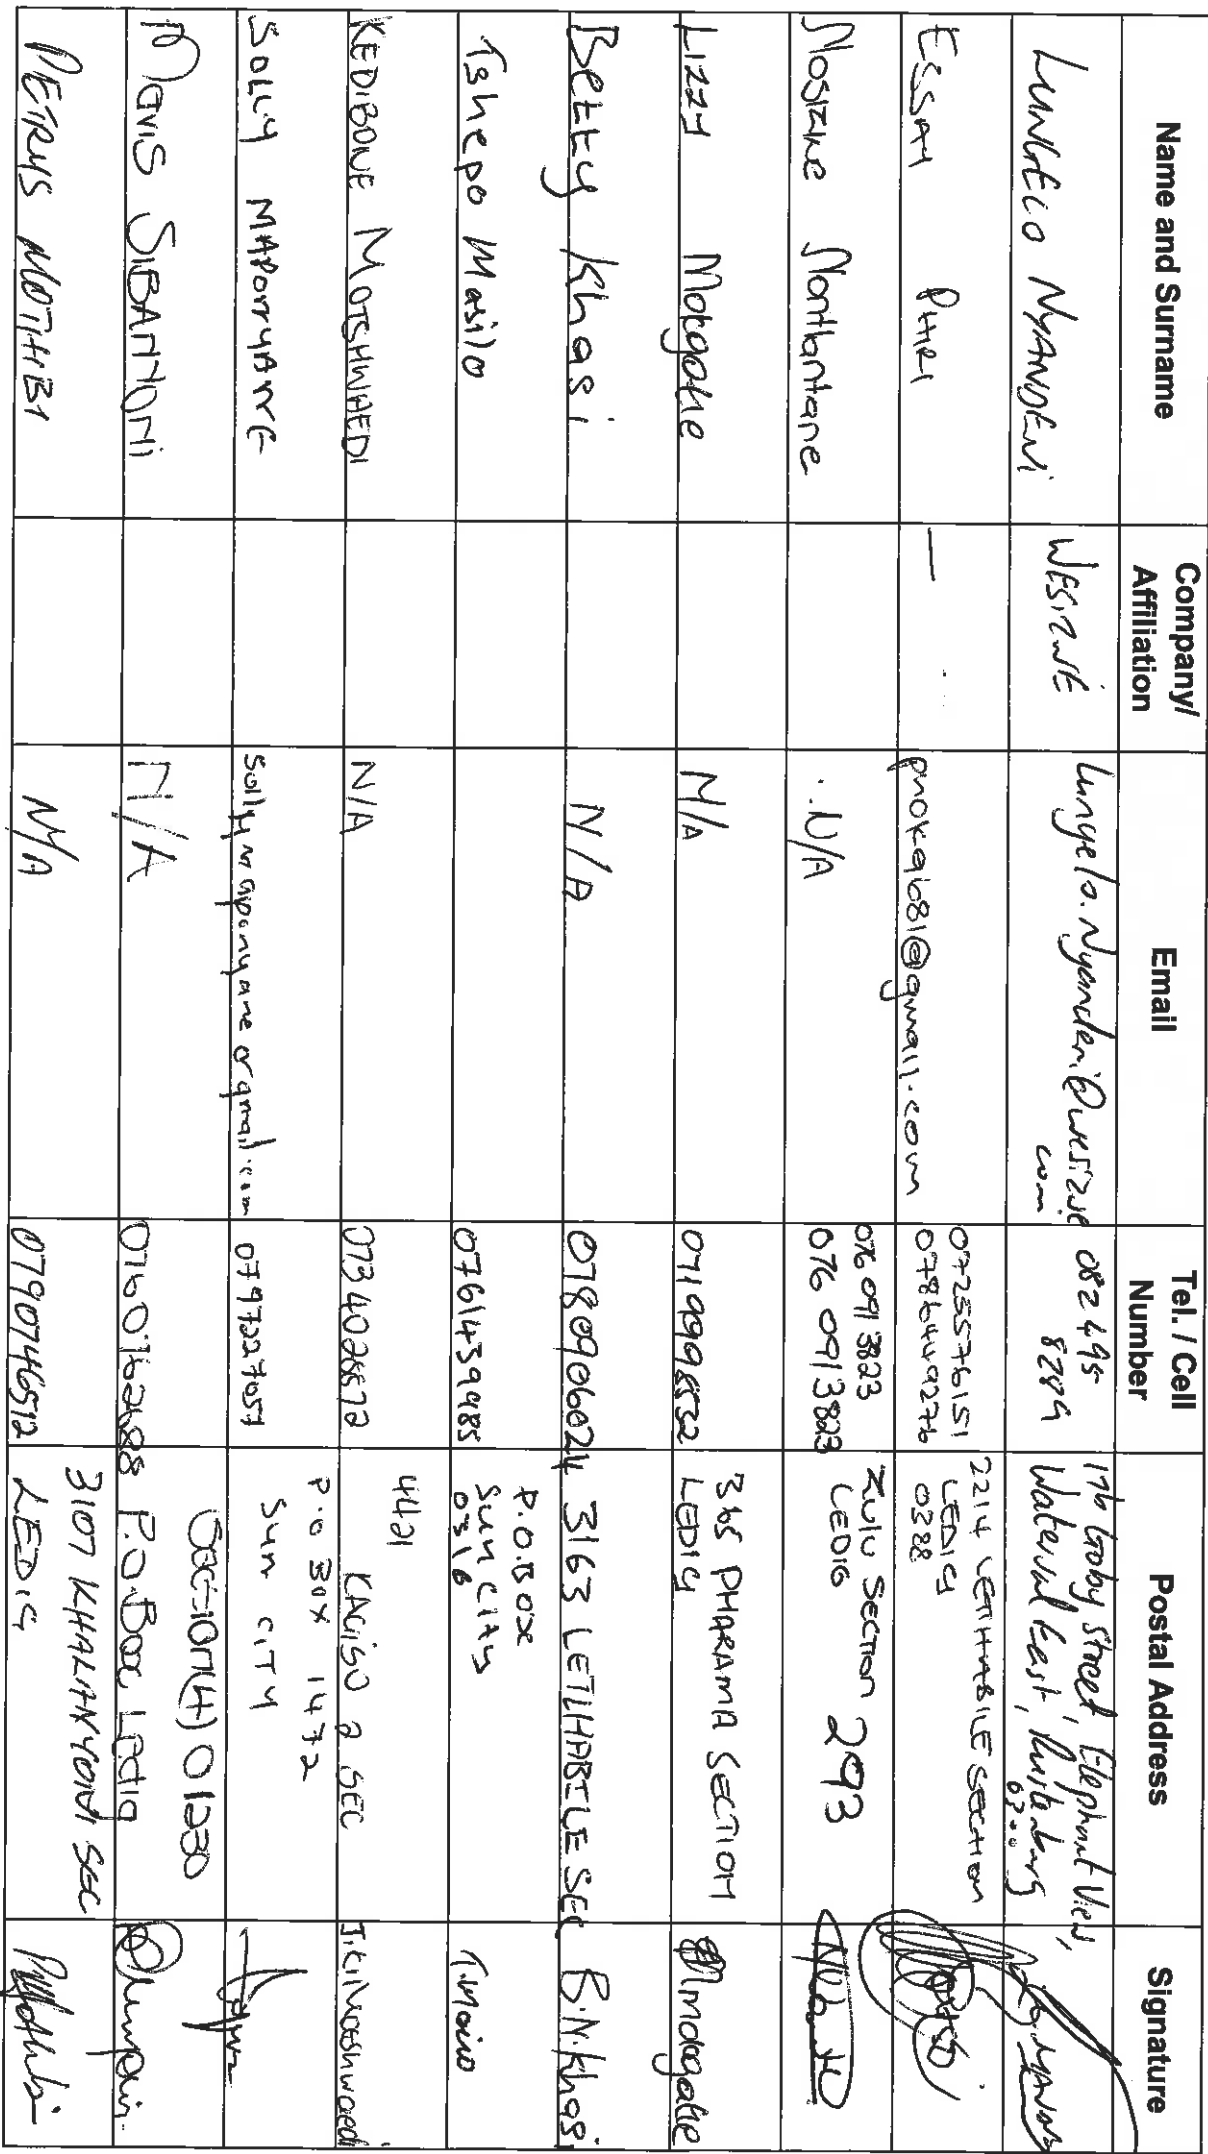 Name and Surname
Company/ Affiliation
Email
Tel. / Cell Number
Postal Address
Signature
LUNGELO NYANDENI
WESIZWE
Lungelo.Nyandeni@wesizwe
com
082 495
8789
176 Goby Street, Elephant View,
Waterval East, Rustenburg
ESSAY PHIRI
—
phokab81@gmail.com
0725576151
0786449276
2214 LETLHABILE SECTION
LEDIG
0388
Nosizwe Nontlantane
N/A
076 0913823
076 0913823
ZULU SECTION 293
LEDIG
Lizzy Mokgatle
N/A
0719998532
365 PHARAMA SECTION
LEDIG
Mmokgatle
Betty Khasi
N/A
0780906024
3163 LETLHABILE SEC
B.N.Khasi
Tshepo Masilo
0761439985
P.O.BOX
SUN CITY
0316
KEDIBONE MOTSHWAEDI
N/A
0734028572
4421
KAGISO 2 SEC
J.K.Motshwaedi
SOLLY MAPONYANE
sollymaponyane@gmail.com
0797227057
P.O BOX 1472
SUN CITY
MAVIS SIBANYONI
N/A
0760762688
SECTION(4) 01230
P.O.Box Ledig
PETRUS MOTHIBI
N/A
0790746512
3107 KHALANYONI SEC
LEDIG